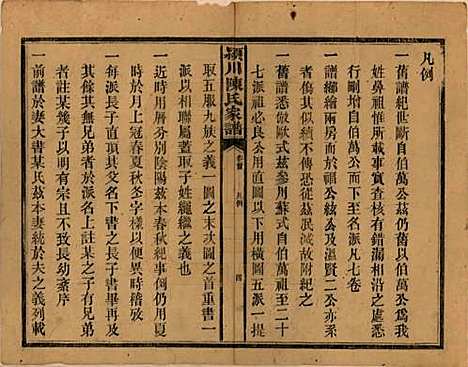 凡例
一舊譜紀世斷自伯萬公茲仍舊爲我
姓鼻祖惟原本查核有錯漏相沿者
行剛增自伯萬公以下至名派凡七卷
一譜繪二兩房而公賢公灝賢二公亦系
者傷其似續不傳恐從茲泯滅故附紀之
一舊譜悉倣歐式茲參用蘇式自伯萬祖至二十
七派祖必良公用直圖以下用橫圖五派一提
潁川陳氏家譜
卷首
凡例
四
取五服九族之義一圖之末次圖之首重書一
派以相聯屬蓋取子姓繩繩之義也
一近時用曆分別陰陽茲本春秋紀事倒仍用夏
時於月上冠春夏秋冬字樣以便異時稽攷
一每派長子直頂其父名之下書之長子書畢再及
其餘若其無兄弟者於派名上註某之子有兄弟
者註某幾子以歸劃一而不致於長幼紊序
一前譜於妻大書某氏茲本妻統於夫之義列載